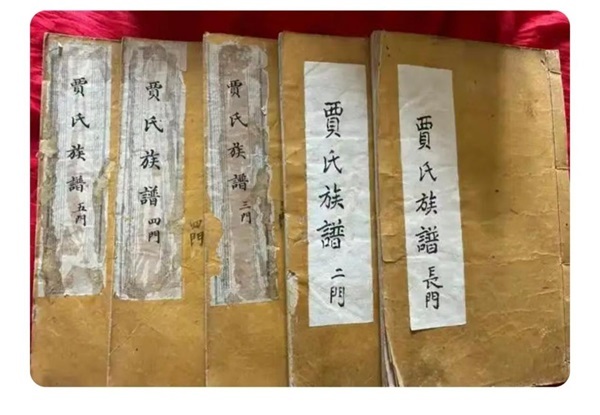 賈氏族譜 長門
賈氏族譜 二門
賈氏族譜 三門
賈氏族譜 四門
四門
賈氏族譜 五門